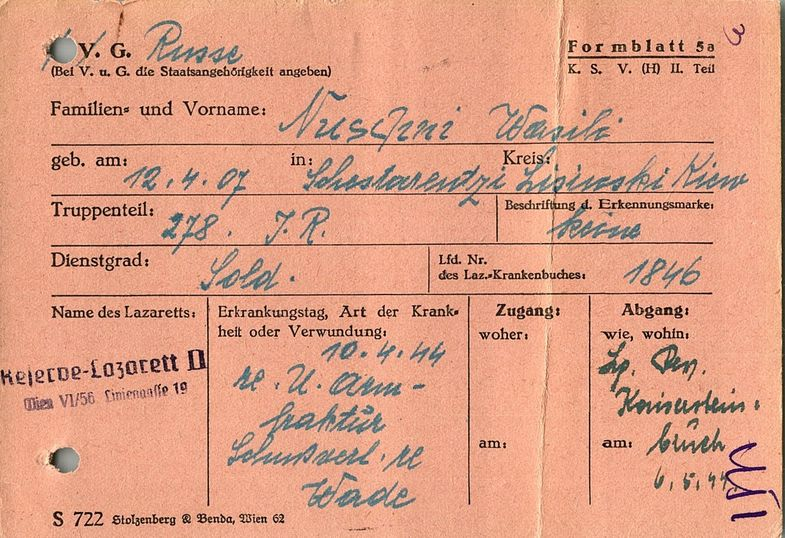 V. G. Russe
Formblatt 5a
3
(Bei V. u. G. die Staatsangehörigkeit angeben)
K. S. V. (H) II. Teil
Familien- und Vorname:
Wasili
geb. am: in: Kreis:
12.4.07 Kiew
Truppenteil: Beschriftung d. Erkennungsmarke:
278. J.R. keine
Dienstgrad: Lfd. Nr.
Sold. des Laz.-Krankenbuches: 1846
Name des Lazaretts:
Reserve-Lazarett II
Wien VI/56, Liniengasse 19
Erkrankungstag, Art der Krank-
heit oder Verwundung:
10.4.44
re. U. arm-
fraktur
Schußverl. re
Wade
Zugang:
woher:
am:
Abgang:
wie, wohin:
Kaiserstein-
am: bruch
6.5.44.
S 722 Stolzenberg & Benda, Wien 62